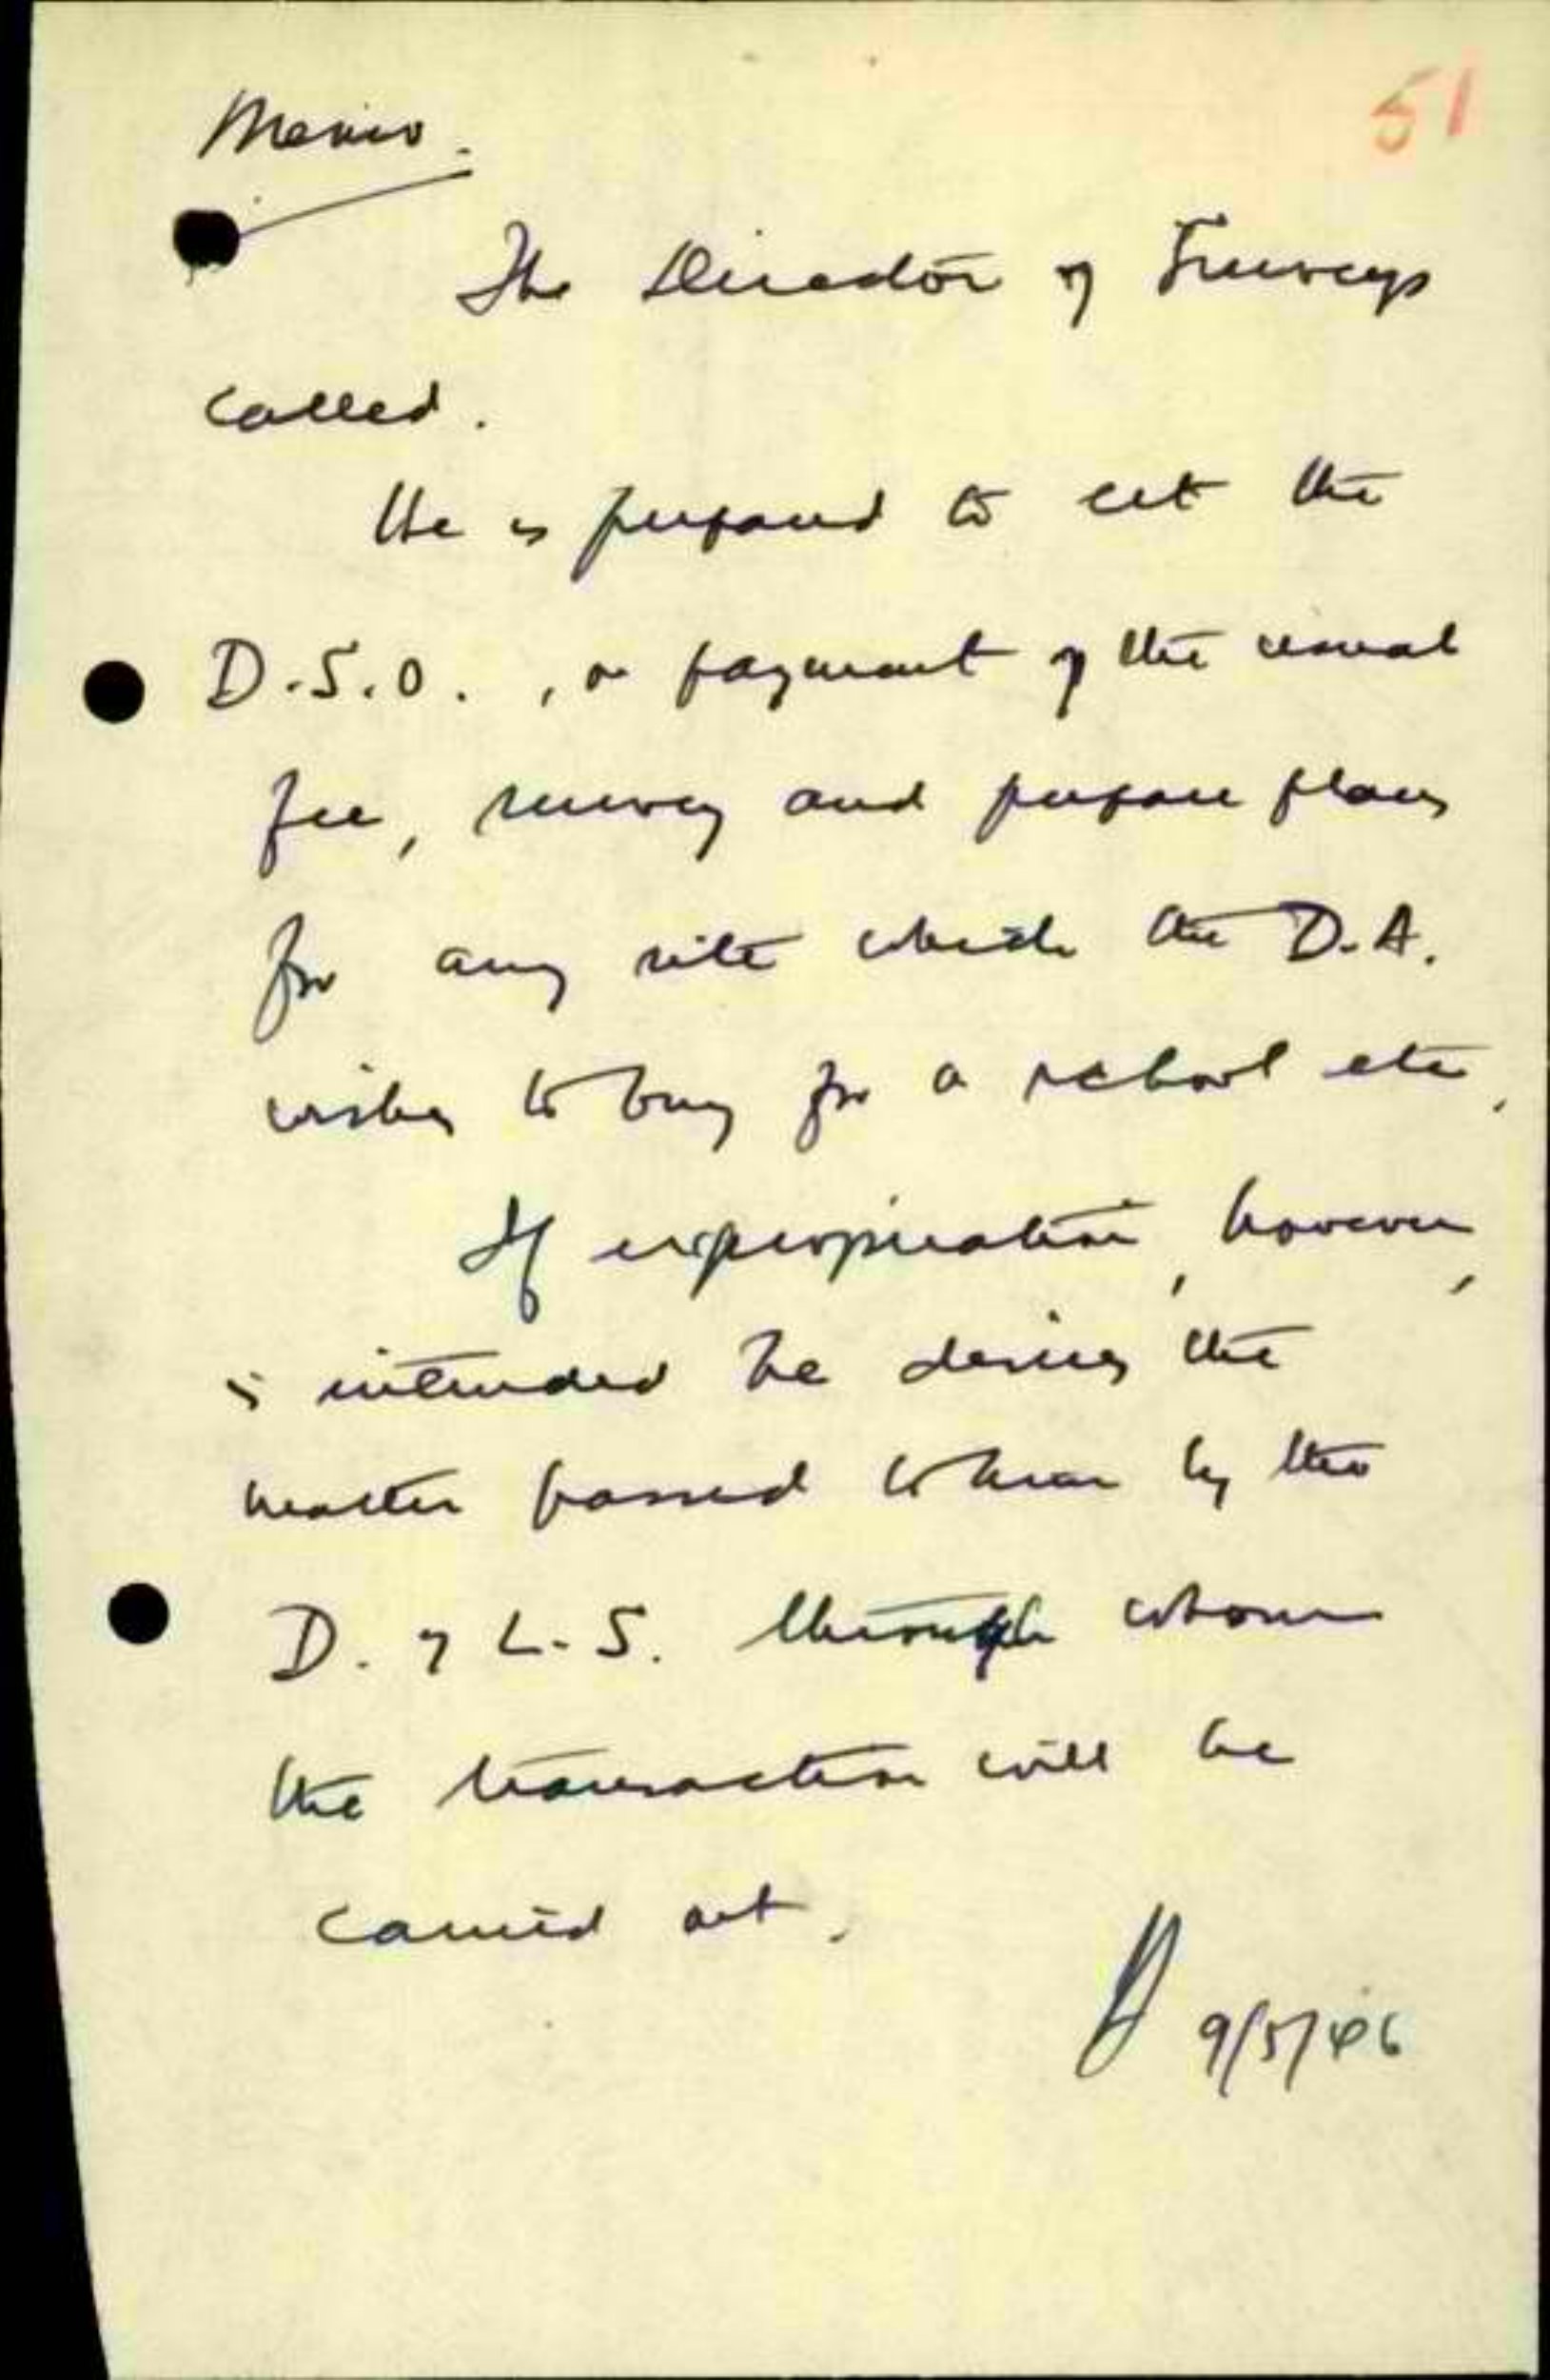 51
Memo.
The Director of Surveys
called.
He is prepared to let the
D.S.O., on payment of the usual
fee, survey and prepare plans
for any site which the D.A.
wishes to buy for a school etc.
If expropriation, however,
is intended he desires the
matter passed to him by the
D. of L.S. through whom
the transaction will be
carried out.
9/5/46